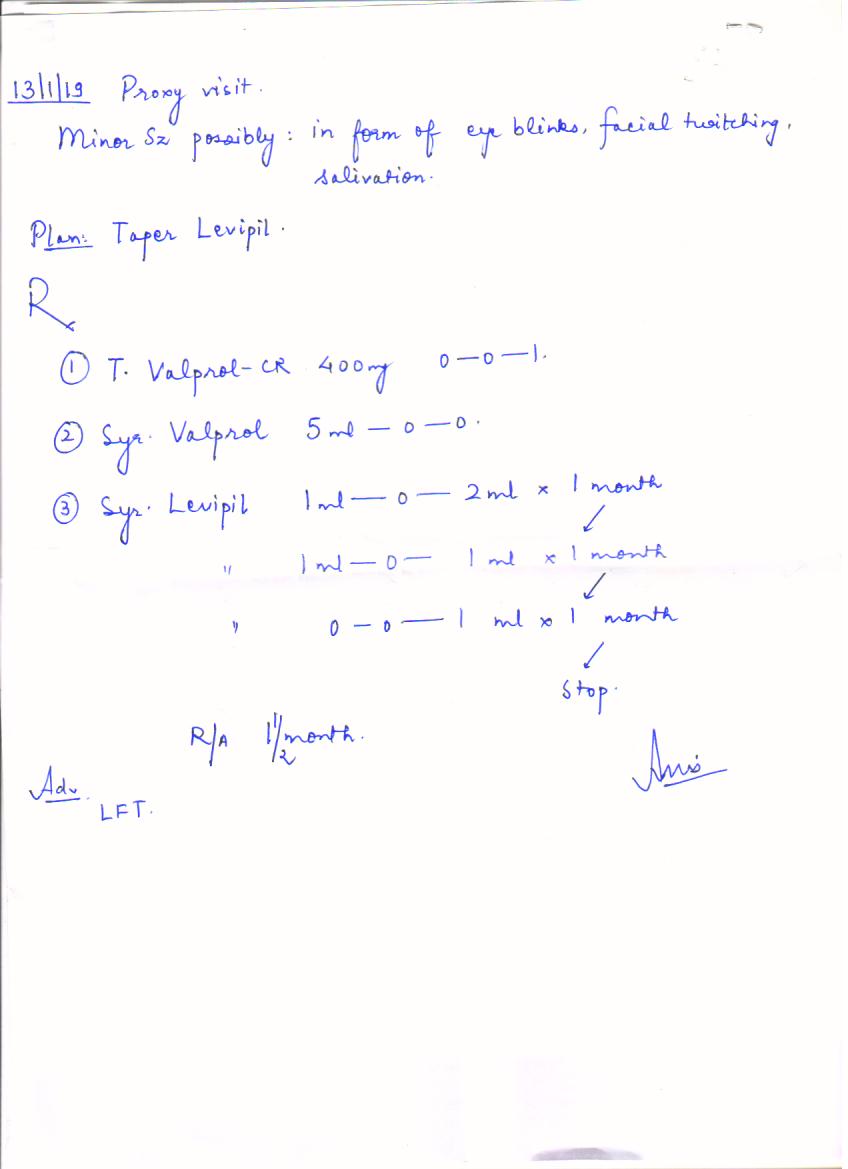 13/1/19 Proxy visit.
Minor Sz possibly: in form of eye blinks, facial twitching,
salivation.
Plan: Taper Levipil.
Rx
① T. Valprol-CR 400mg 0—0—1.
② Syr. Valprol 5ml — 0 — 0.
③ Syr. Levipil 1ml — 0 — 2ml × 1 month
" 1ml — 0 — 1 ml × 1 month
" 0 — 0 — 1 ml × 1 month
Stop.
R/A 1 1/2 month.
Adv.
LFT.